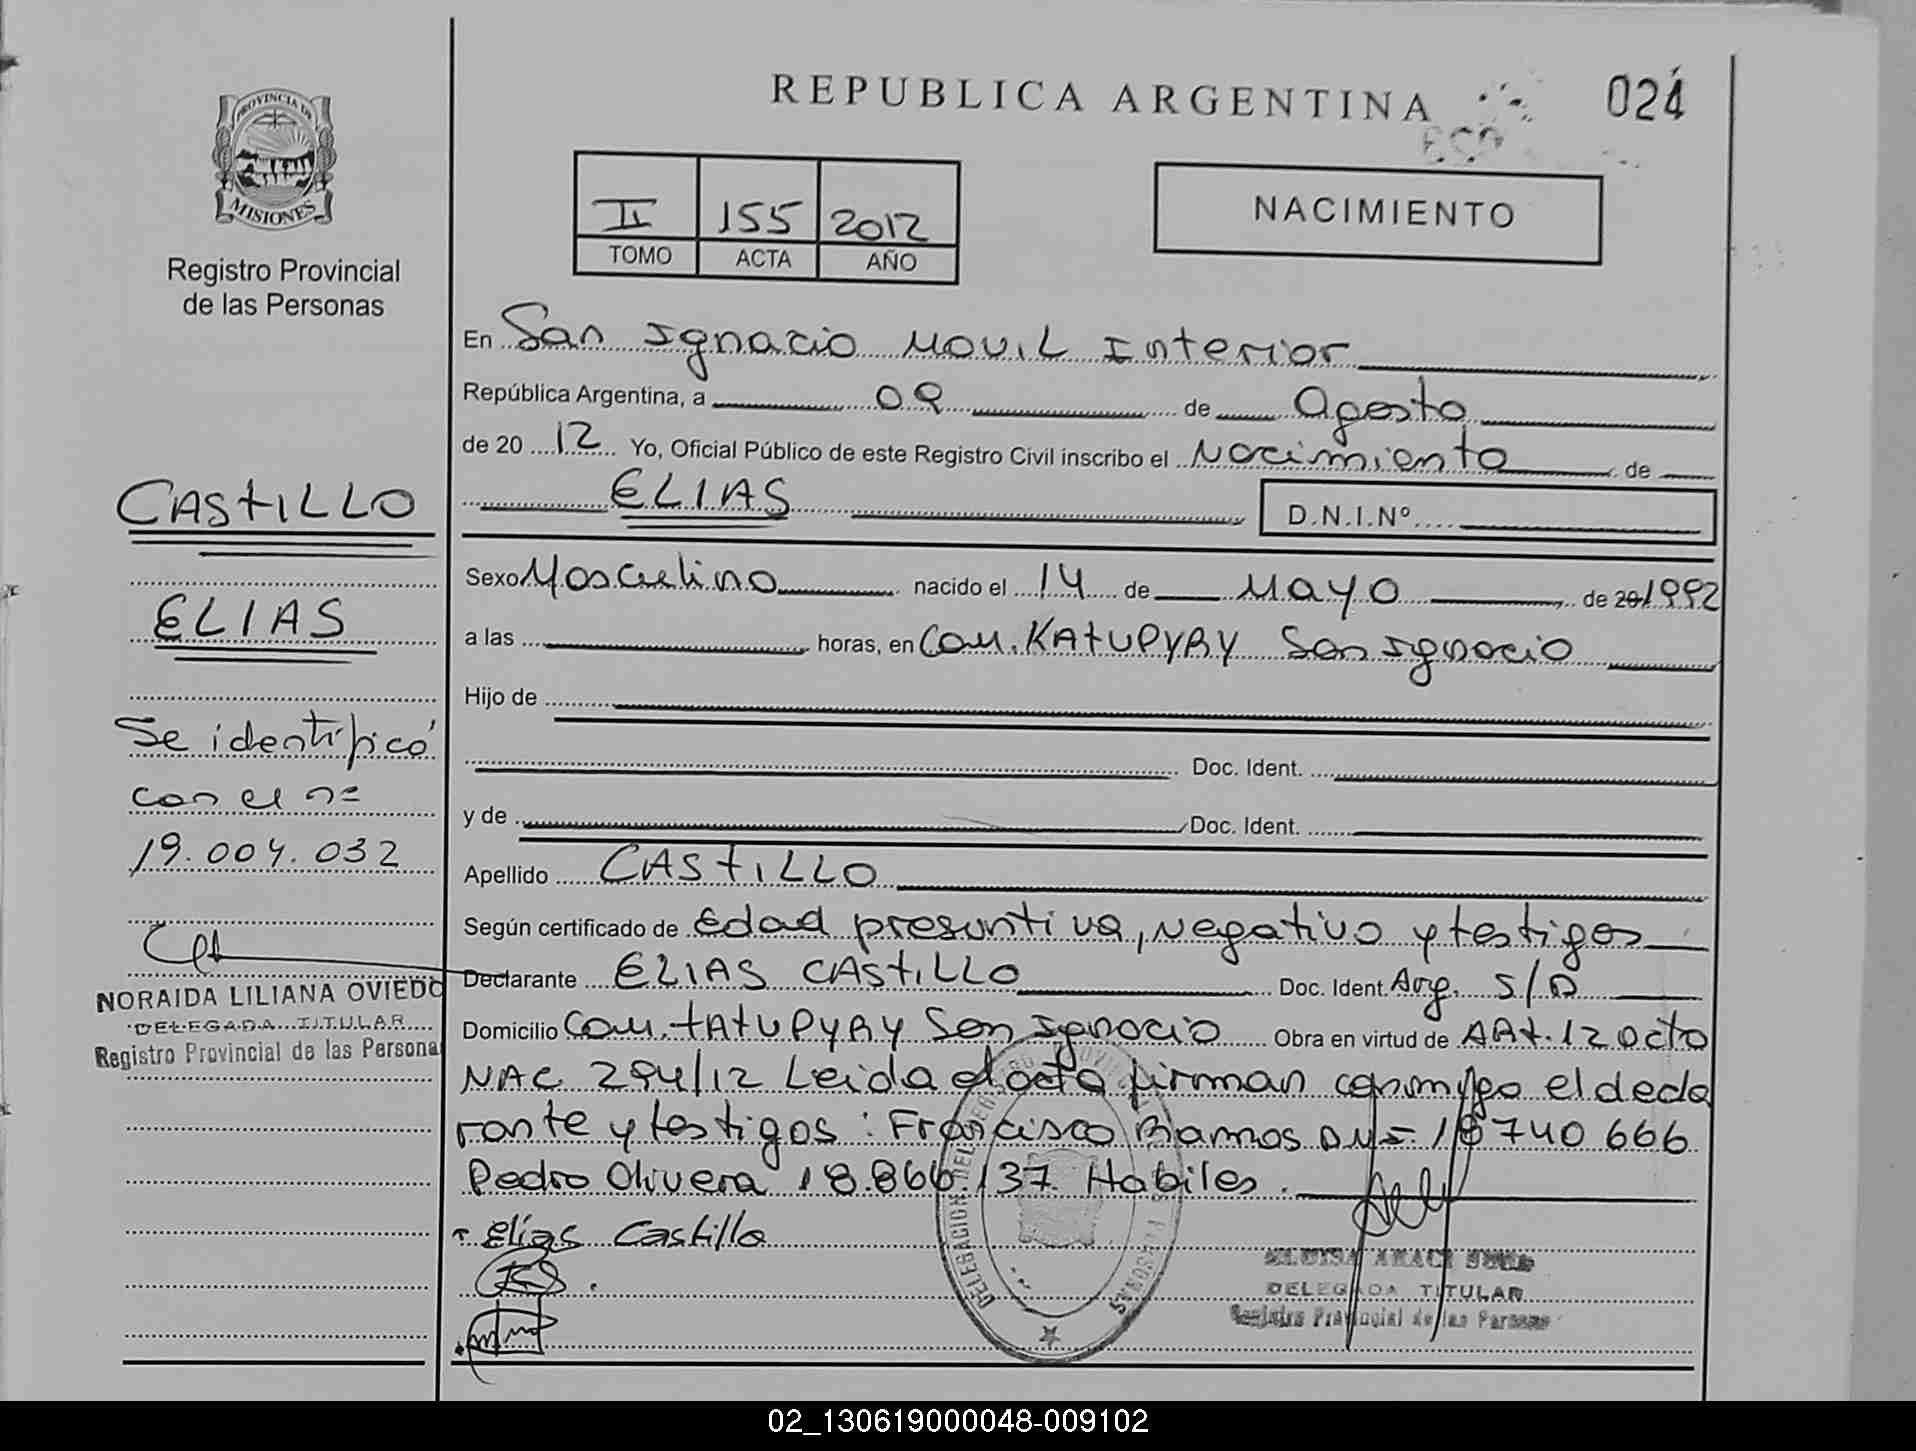 REPUBLICA ARGENTINA
024
PROVINCIA DE
MISIONES
Registro Provincial
de las Personas
II 155 2012
TOMO ACTA AÑO
NACIMIENTO
En San Ignacio Movil Interior
República Argentina, a 09 de Agosto
de 20 12 Yo, Oficial Público de este Registro Civil inscribo el Nacimiento de
ELIAS D.N.I.Nº
Sexo Masculino nacido el 14 de Mayo de 20 1992
a las horas, en Com. KAtUPYRY San Ignacio
Hijo de
Doc. Ident.
y de Doc. Ident.
Apellido CAStILLO
Según certificado de Edad presuntiva, negativo y testigos
Declarante ELIAS CAStILLO Doc. Ident. Arg. S/D
Domicilio Com. tAtUPYRY San Ignacio Obra en virtud de ARt. 12 Dcto
NAC 294/12 Leida el acta firman conmigo el decla
rante y testigos : Francisco Ramos DNI: 18 740 666
Pedro Olivera 18.866 137 Habiles.
Elías Castillo
DELEGADA TITULAR
Registro Provincial de las Personas
CAStILLO
ELIAS
Se identificó
con el nº
19.004.032
NORAIDA LILIANA OVIEDO
DELEGADA TITULAR
Registro Provincial de las Persona
02_130619000048-009102